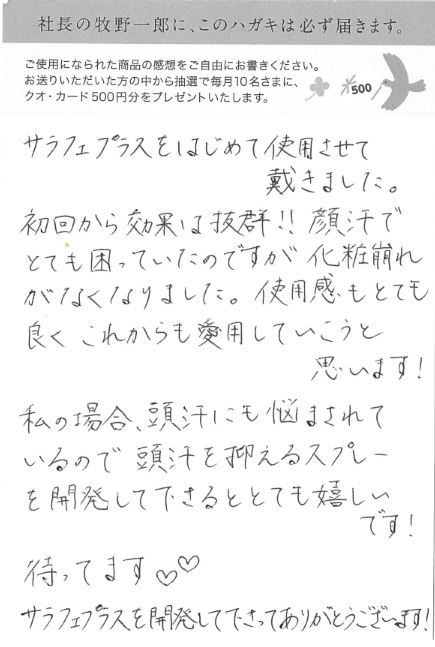 社長の牧野一郎に、このハガキは必ず届きます。
ご使用になられた商品の感想をご自由にお書きください。
お送りいただいた方の中から抽選で毎月10名さまに、
クオ・カード500円分をプレゼントいたします。
¥500
サラフェプラスをはじめて使用させて
戴きました。
初回から効果は抜群!! 顔汗で
とても困っていたのですが 化粧崩れ
がなくなりました。使用感もとても
良く これからも愛用していこうと
思います!
私の場合、頭汗にも悩まされて
いるので 頭汗を抑えるスプレー
を開発して下さるととても嬉しい
です!
待ってます♡♡
サラフェプラスを開発して下さってありがとうございます!